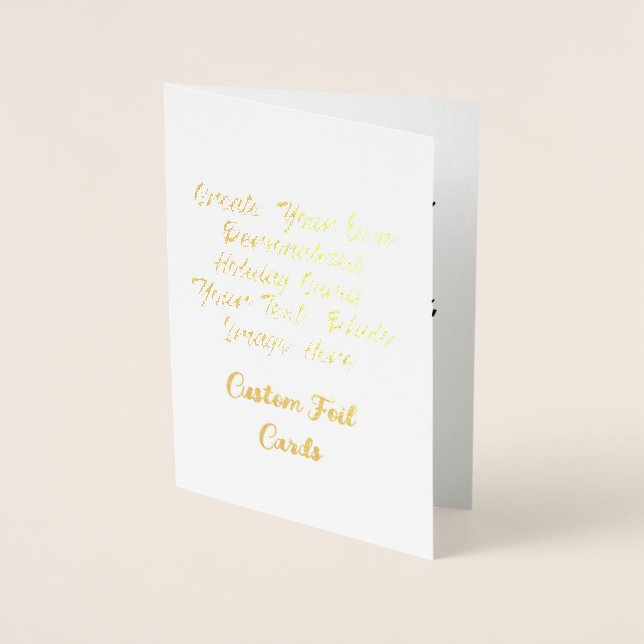 Create Your Own
Personalized
Holiday Cards
Your Text, Photo
Image Here
Custom Foil
Cards